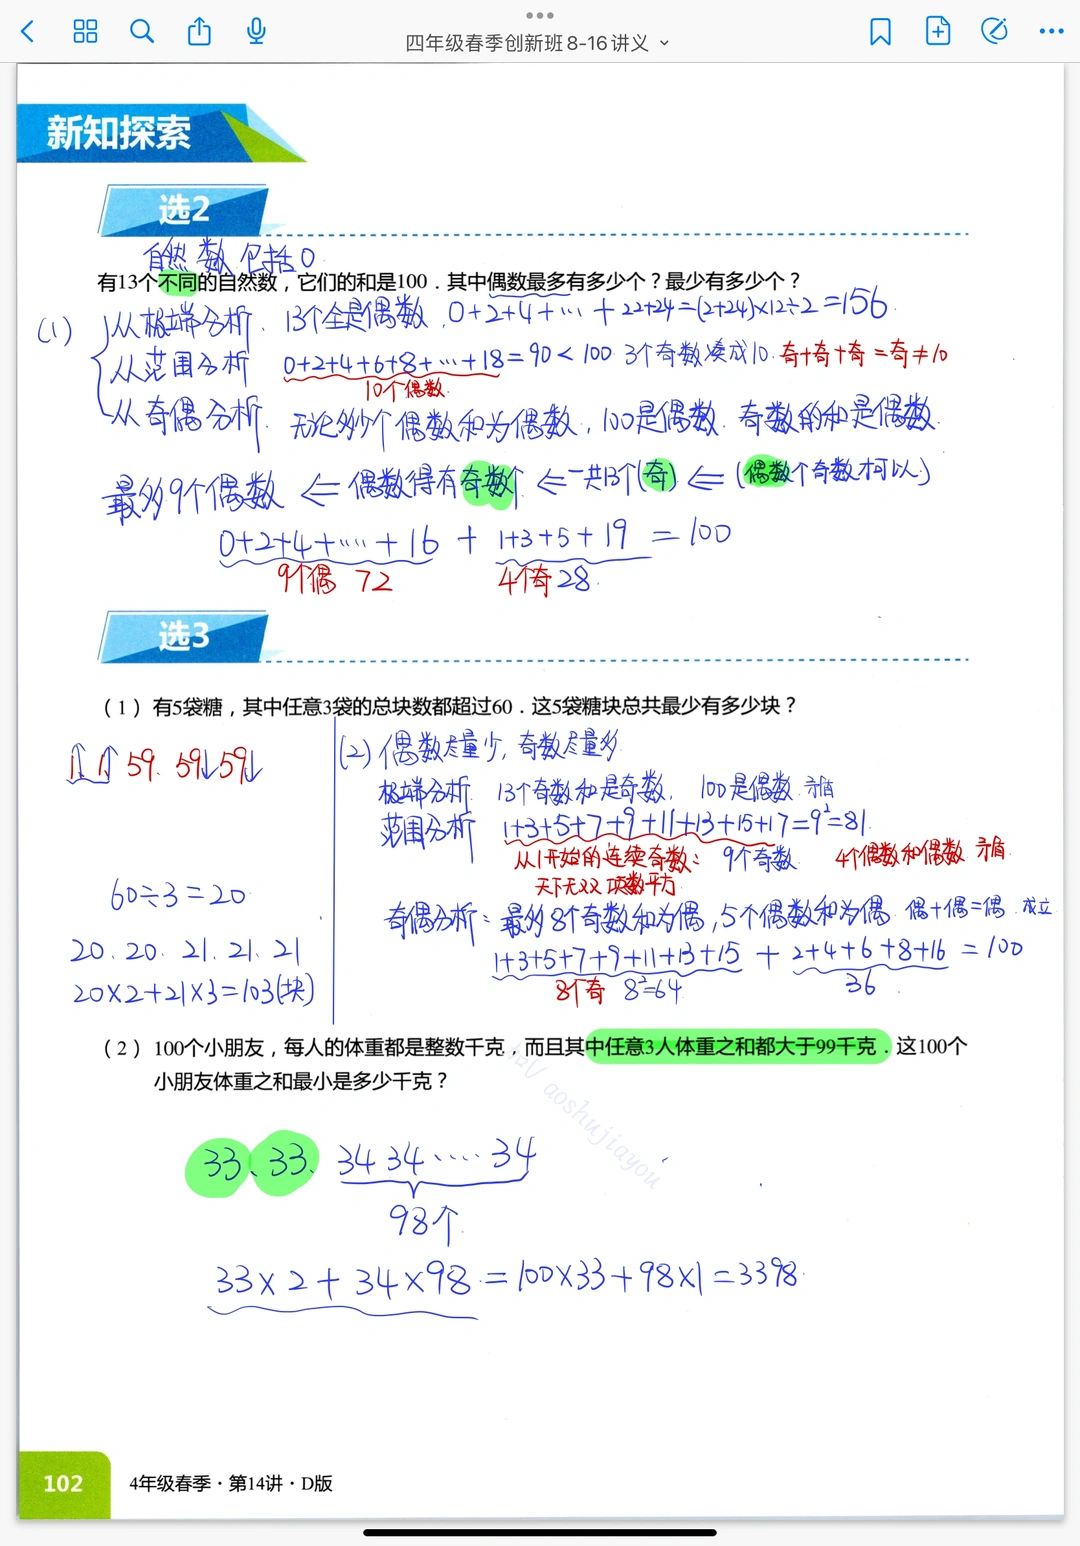 四年级春季创新班8-16讲义
新知探索
选2
自然数包括0
有13个不同的自然数，它们的和是100．其中偶数最多有多少个？最少有多少个？
(1)
从极端分析．13个全是偶数，0+2+4+…+22+24=(2+24)×12÷2=156
从范围分析 0+2+4+6+8+…+18=90<100 3个奇数凑成10．奇+奇+奇=奇≠10
10个偶数
从奇偶分析．无论多少个偶数和为偶数，100是偶数．奇数的和是偶数
最多9个偶数 ⇐ 偶数得有奇数个 ⇐ 一共13个(奇) ⇐ (偶数个奇数才可以)
0+2+4+……+16 + 1+3+5+19 = 100
9个偶 72 4个奇 28
选3
（1）有5袋糖，其中任意3袋的总块数都超过60．这5袋糖块总共最少有多少块？
1、1、59、59↓59↓
60÷3=20
20、20、21、21、21
20×2+21×3=103(块)
(2) 偶数尽量少，奇数尽量多
极端分析 13个奇数和是奇数， 100是偶数 矛盾
范围分析 1+3+5+7+9+11+13+15+17=9²=81
从1开始的连续奇数： 9个奇数 4个偶数和偶数 矛盾
天下无双 项数平方
奇偶分析：最多8个奇数和为偶，5个偶数和为偶 偶+偶=偶 成立
1+3+5+7+9+11+13+15 + 2+4+6+8+16 = 100
8个奇 8²=64 36
（2）100个小朋友，每人的体重都是整数千克，而且其中任意3人体重之和都大于99千克．这100个
小朋友体重之和最小是多少千克？
hzV aoshujiayou
33、33、34 34 …… 34
98个
33×2+34×98=100×33+98×1=3398
102
4年级春季·第14讲·D版